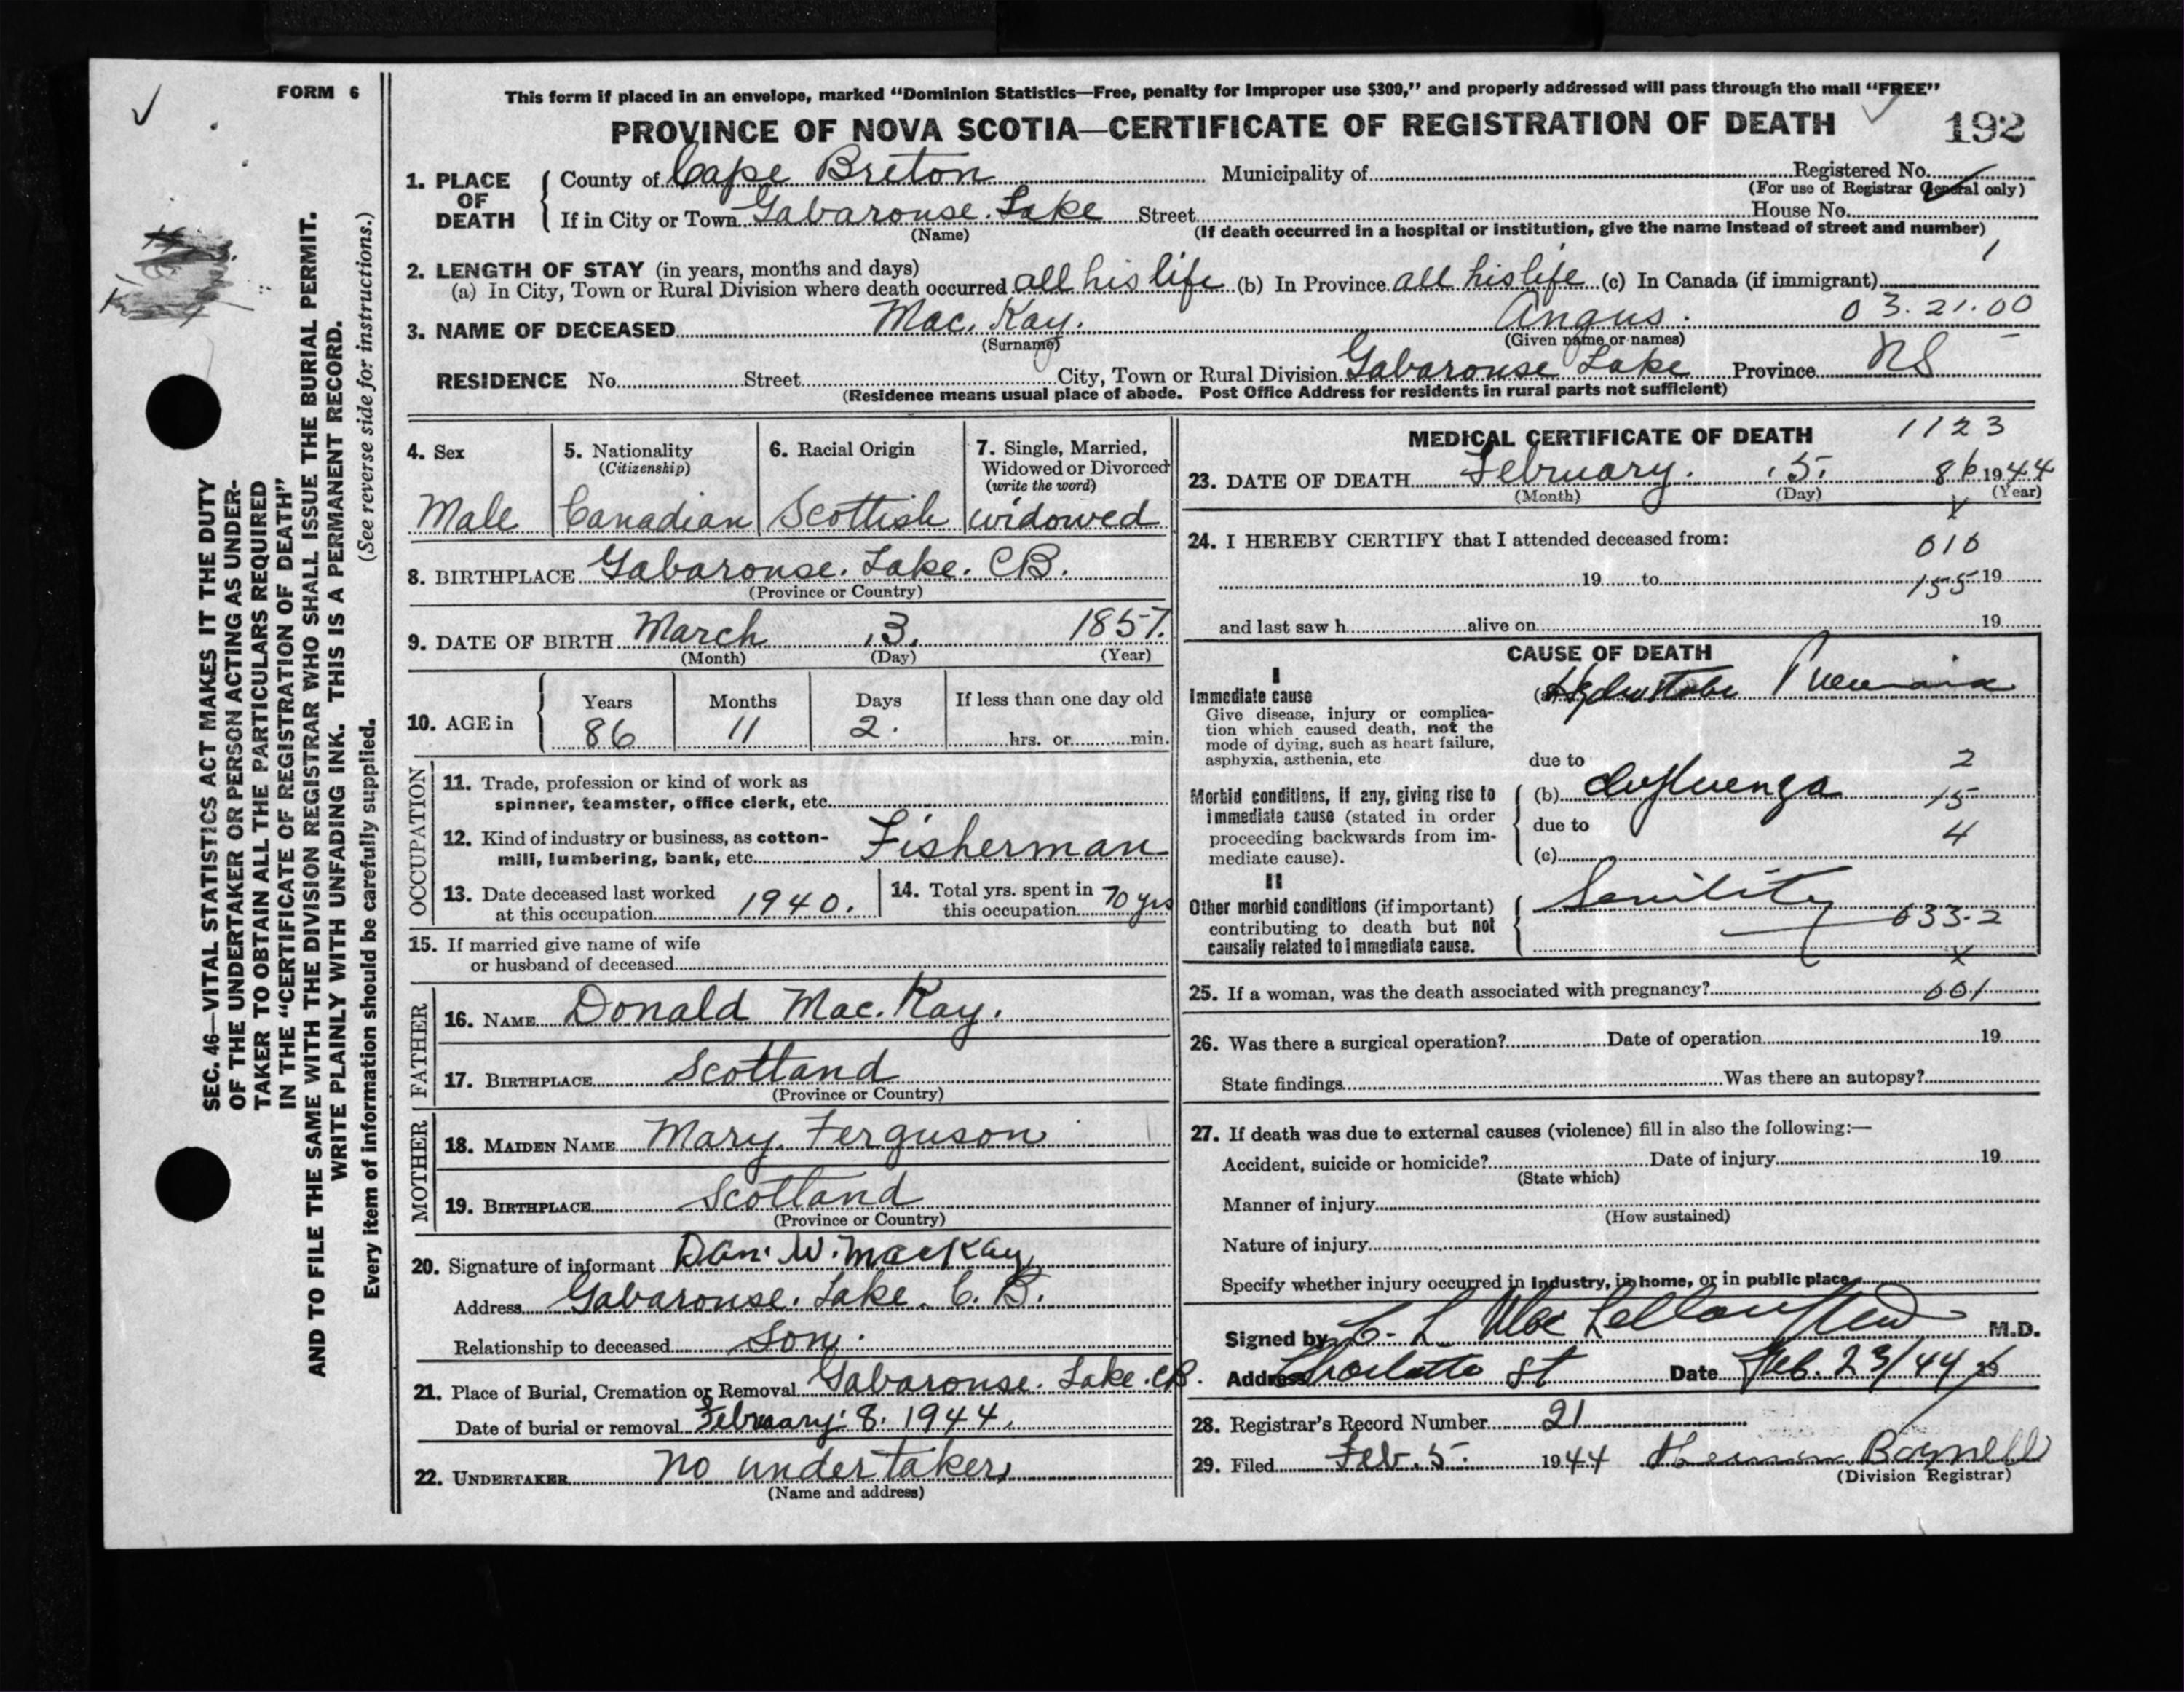 FORM 6
This form if placed in an envelope, marked "Dominion Statistics—Free, penalty for improper use $300," and properly addressed will pass through the mail "FREE"
PROVINCE OF NOVA SCOTIA—CERTIFICATE OF REGISTRATION OF DEATH 192
1. PLACE OF DEATH
County of Cape Breton Municipality of Registered No.
(For use of Registrar General only)
If in City or Town Gabarouse. Lake Street House No.
(Name) (If death occurred in a hospital or institution, give the name instead of street and number)
1
2. LENGTH OF STAY (in years, months and days)
(a) In City, Town or Rural Division where death occurred all his life (b) In Province all his life (c) In Canada (if immigrant)
3. NAME OF DECEASED Mac. Kay. Angus. 03.21.00
(Surname) (Given name or names)
RESIDENCE No. Street City, Town or Rural Division Gabarouse Lake Province NS
(Residence means usual place of abode. Post Office Address for residents in rural parts not sufficient)
4. Sex
Male
5. Nationality
(Citizenship)
Canadian
6. Racial Origin
Scottish
7. Single, Married,
Widowed or Divorced
(write the word)
widowed
8. BIRTHPLACE Gabarouse. Lake. CB.
(Province or Country)
9. DATE OF BIRTH March 3. 1857.
(Month) (Day) (Year)
10. AGE in
Years Months Days If less than one day old
86 11 2. hrs. or min.
OCCUPATION
11. Trade, profession or kind of work as
spinner, teamster, office clerk, etc.
12. Kind of industry or business, as cotton-
mill, lumbering, bank, etc. Fisherman
13. Date deceased last worked
at this occupation 1940.
14. Total yrs. spent in
this occupation 70 yrs
15. If married give name of wife
or husband of deceased
FATHER
16. NAME Donald Mac. Kay.
17. BIRTHPLACE Scotland
(Province or Country)
MOTHER
18. MAIDEN NAME Mary. Ferguson
19. BIRTHPLACE Scotland
(Province or Country)
20. Signature of informant Dan. W. MacKay
Address Gabarouse. Lake. C. B.
Relationship to deceased Son.
21. Place of Burial, Cremation or Removal Gabarouse. Lake. CB.
Date of burial or removal February. 8. 1944.
22. UNDERTAKER no undertaker
(Name and address)
MEDICAL CERTIFICATE OF DEATH 1123
23. DATE OF DEATH February. 5. 86 1944
(Month) (Day) (Year)
24. I HEREBY CERTIFY that I attended deceased from: 010
19 to 155 19
and last saw h alive on 19
CAUSE OF DEATH
I
Immediate cause
Give disease, injury or complica-
tion which caused death, not the
mode of dying, such as heart failure,
asphyxia, asthenia, etc
(a) Pneumonia
due to 2
Morbid conditions, if any, giving rise to
immediate cause (stated in order
proceeding backwards from im-
mediate cause).
(b) Influenza 15
due to 4
(c)
II
Other morbid conditions (if important)
contributing to death but not
causally related to immediate cause.
Senility
633-2
X
25. If a woman, was the death associated with pregnancy? 001
26. Was there a surgical operation? Date of operation 19
State findings Was there an autopsy?
27. If death was due to external causes (violence) fill in also the following:—
Accident, suicide or homicide? Date of injury 19
(State which)
Manner of injury
(How sustained)
Nature of injury
Specify whether injury occurred in industry, in home, or in public place
Signed by M.D.
Address Charlotte St Date Feb. 23/44
28. Registrar's Record Number 21
29. Filed Feb. 5. 1944
(Division Registrar)
SEC. 46—VITAL STATISTICS ACT MAKES IT THE DUTY
OF THE UNDERTAKER OR PERSON ACTING AS UNDER-
TAKER TO OBTAIN ALL THE PARTICULARS REQUIRED
IN THE "CERTIFICATE OF REGISTRATION OF DEATH"
AND TO FILE THE SAME WITH THE DIVISION REGISTRAR WHO SHALL ISSUE THE BURIAL PERMIT.
WRITE PLAINLY WITH UNFADING INK. THIS IS A PERMANENT RECORD.
(See reverse side for instructions.)
Every item of information should be carefully supplied.